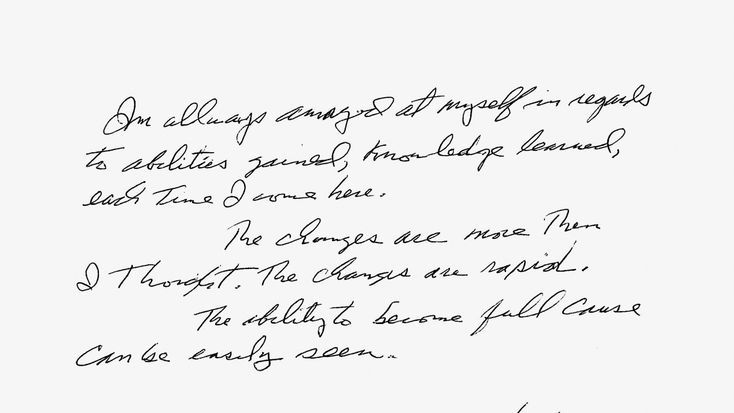 Im allways amazed at myself in regards
to abilities gained, knowledge learned,
each time I come here.
The changes are more then
I thought. The changes are rapid.
The ability to become full cause
can be easily seen..